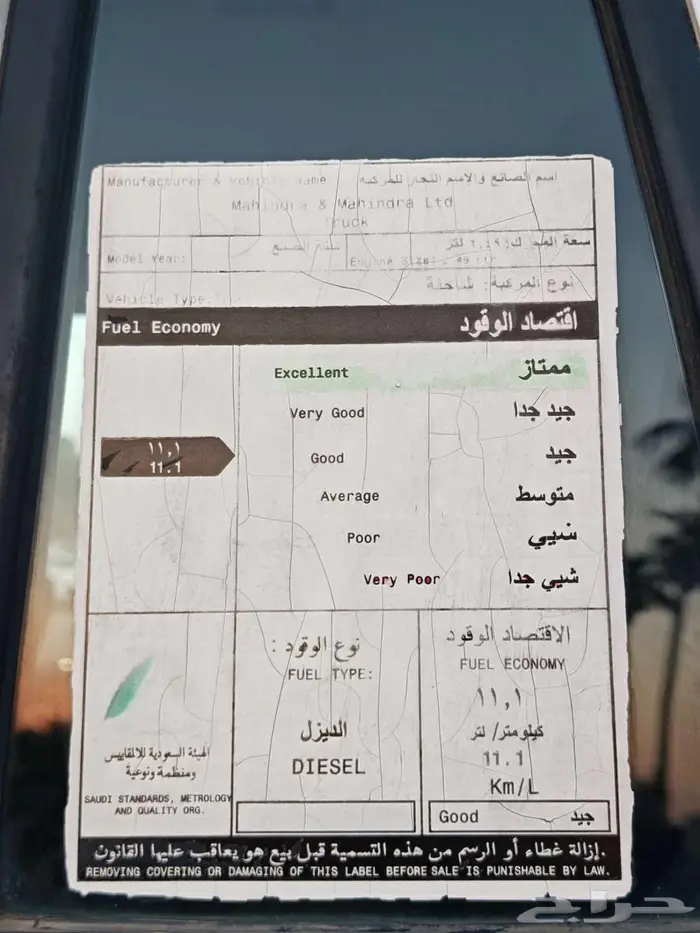 Manufacturer & Vehicle Name اسم الصانع والاسم التجار للمركبه
Mahindra & Mahindra Ltd
Truck
Model Year: سنة الصنع
سعة المح لتر
Engine Size:
نوع المركبة: شاحنة
Vehicle Type:
Fuel Economy اقتصاد الوقود
Excellent ممتاز
Very Good جيد جدا
Good جيد
١١,١
11.1
Average متوسط
Poor شيي
Very Poor شيي جدا
الهيئة السعودية للالقاييس
ومنظمة ونوعية
SAUDI STANDARDS, METROLOGY
AND QUALITY ORG.
نوع الوقود :
FUEL TYPE:
الديزل
DIESEL
الاقتصاد الوقود
FUEL ECONOMY
١١,١
كيلومتر/ لتر
11.1
Km/L
Good جيد
إزالة غطاء أو الرسم من هذه التسمية قبل بيع هو يعاقب عليها القانون.
REMOVING COVERING OR DAMAGING OF THIS LABEL BEFORE SALE IS PUNISHABLE BY LAW.
حراج